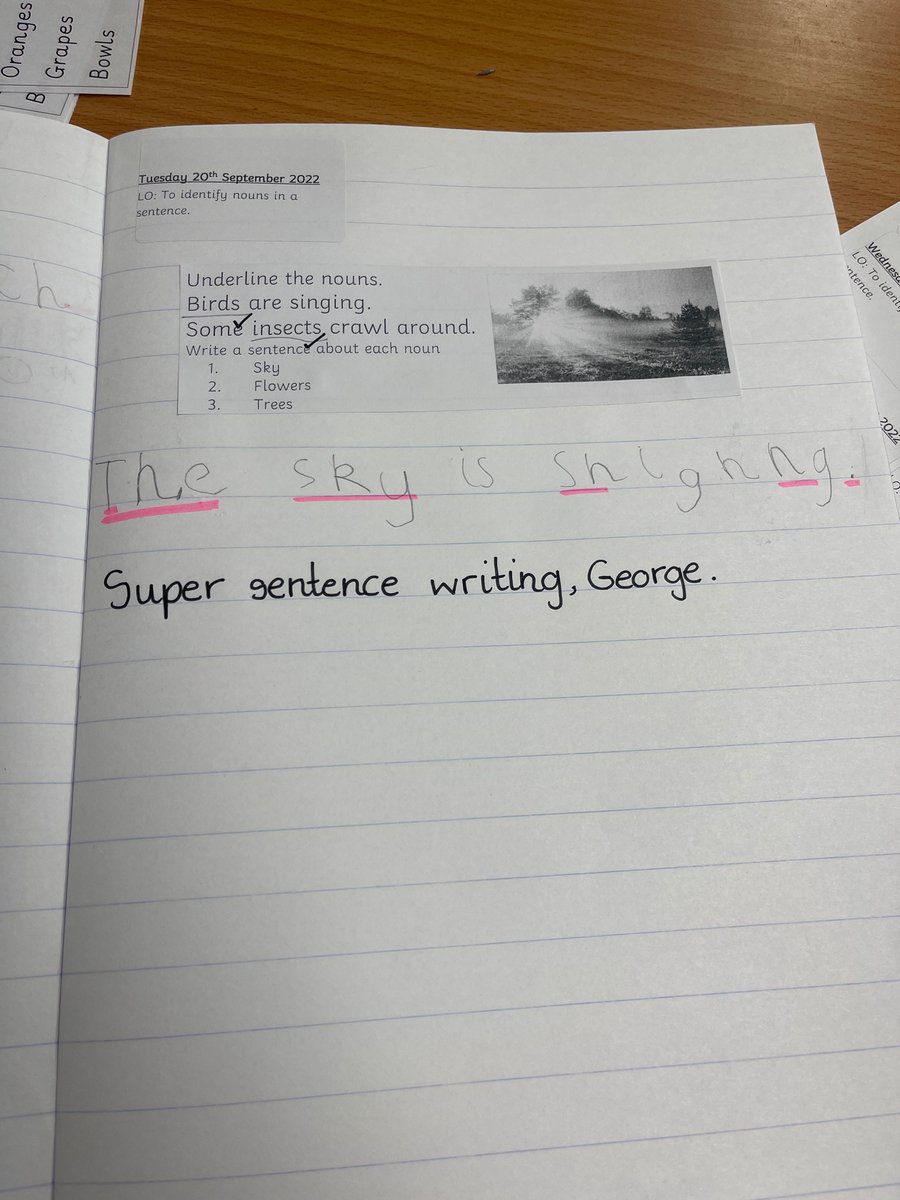 Oranges
Grapes
Bowls
B
Tuesday 20th September 2022
LO: To identify nouns in a
sentence.
Underline the nouns.
Birds are singing.
Some insects crawl around.
Write a sentence about each noun
1. Sky
2. Flowers
3. Trees
The sky is shighng.
Super sentence writing, George.
Wednes
LO: To identi
ntence.
2022